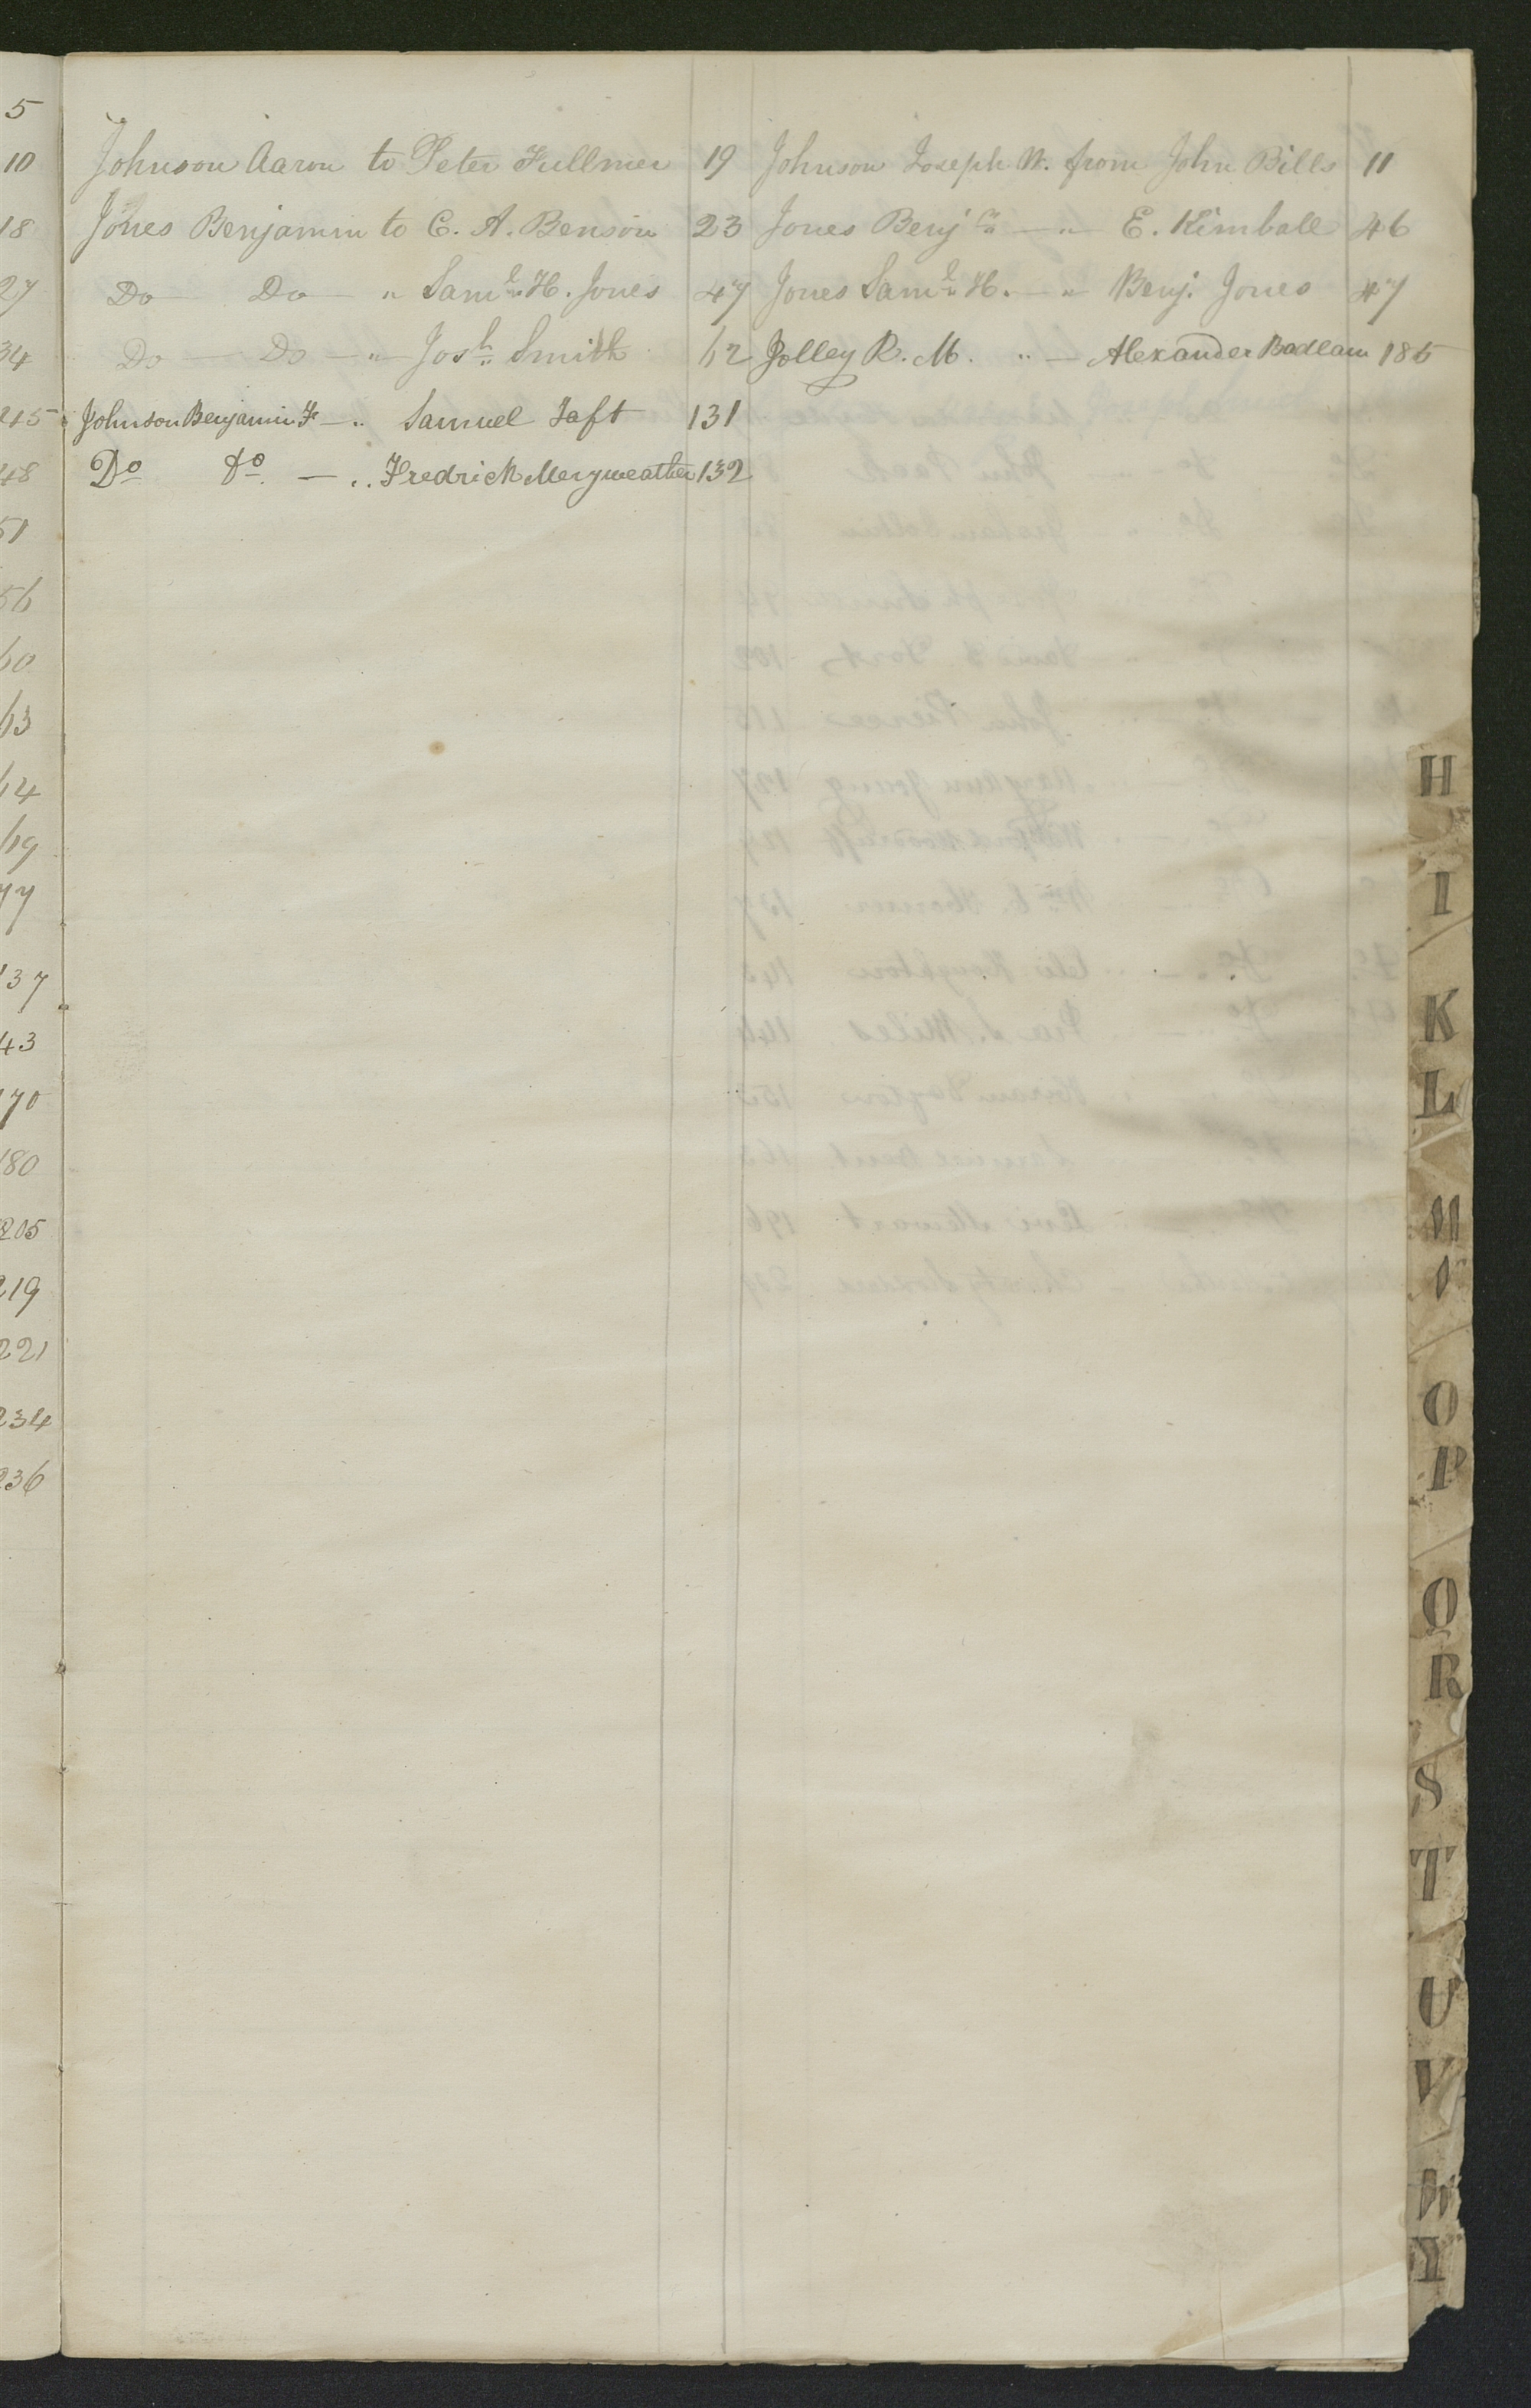 5
10
18
27
34
45
48
51
56
60
63
64
69
77
137
143
170
180
205
219
221
234
236
Johnson Aaron to Peter Fullmer 19
Jones Benjamin to E. A. Benson 23
Do — Do — " Saml. H. Jones 47
Do — Do — " Josh. Smith 62
Johnson Benjamin F — " Samuel Taft 131
Do Do. — " Fredrick Meryweather 132
Johnson Joseph W. from John Bills 11
Jones Benjn — " — E. Kimball 46
Jones Saml. H. — " — Benj. Jones 47
Jolley R. M. " — Alexander Badlam 185
H
I
K
L
M
N
O
P
Q
R
S
T
U
V
W
Y